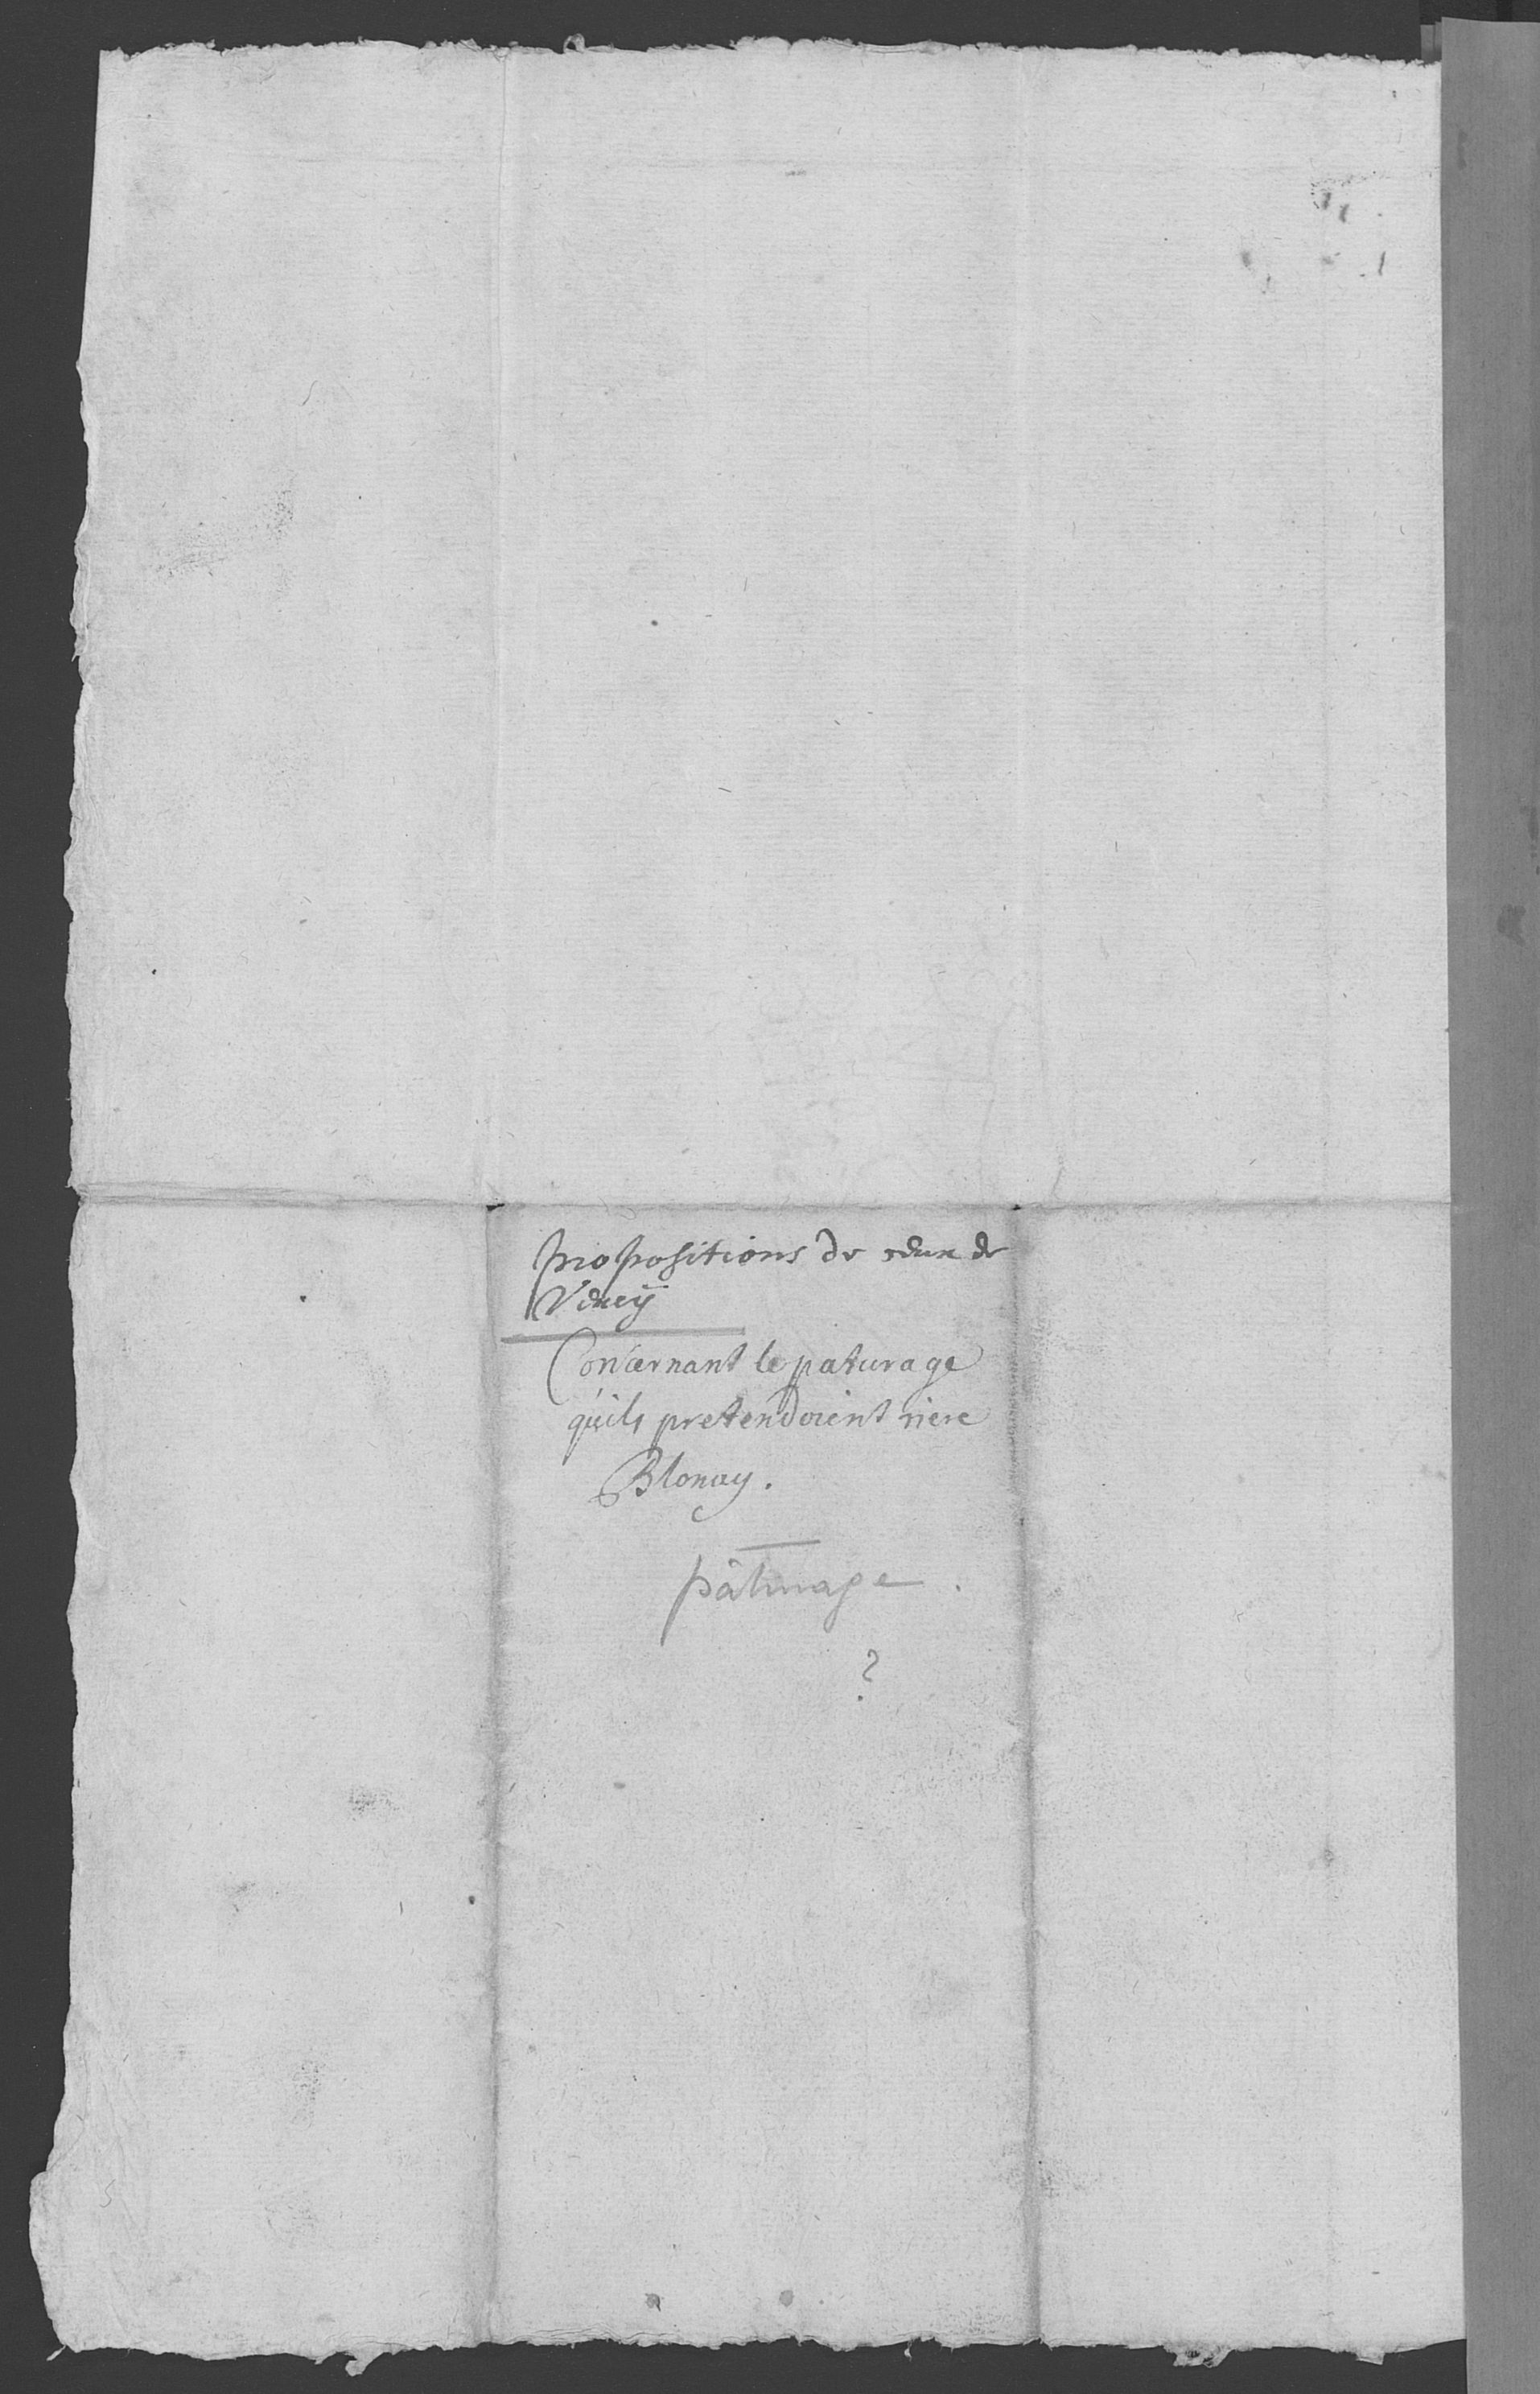 propositions de ceux de
Vevey
Concernant le paturage
qu'ils pretendoient riere
Blonay.
pâturage.
?